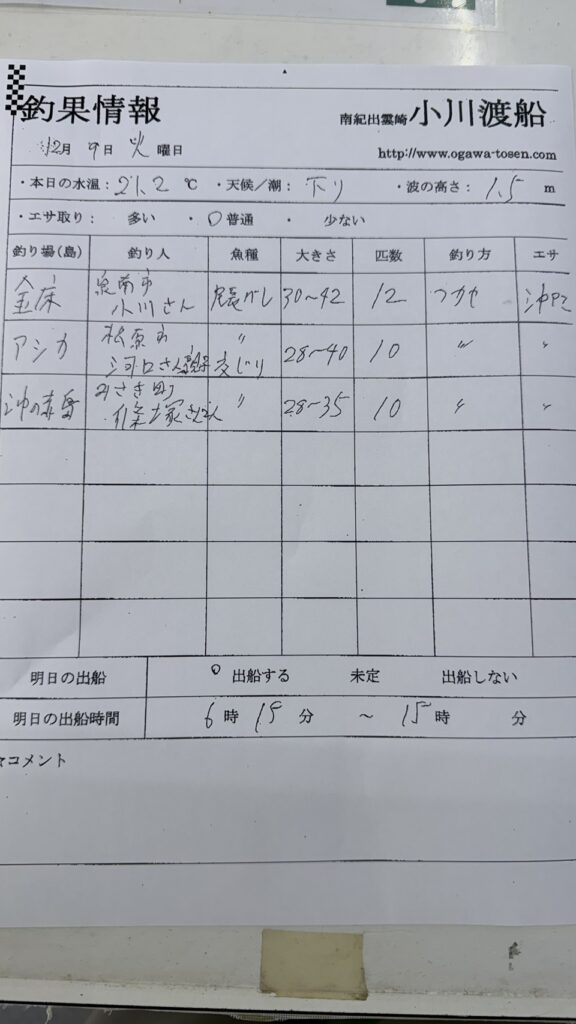 釣果情報
南紀出雲崎 小川渡船
12月 9日 火曜日
http://www.ogawa-tosen.com
・本日の水温：21.2 ℃ ・天候／潮： 下り ・波の高さ： 1.5 m
・エサ取り： 多い ・ ○普通 ・ 少ない
釣り場(島) 釣り人 魚種 大きさ 匹数 釣り方 エサ
泉南市
金床 小川さん 尾長グレ 30～42 12 フカセ 沖アミ
松原市 〃
アシカ 河口さん 交じり 28～40 10 〃 〃
みさき町 〃
沖の 塚さん 28～35 10 〃 〃
明日の出船 ○ 出船する 未定 出船しない
明日の出船時間 6 時 15 分 ～ 15 時 分
☆コメント